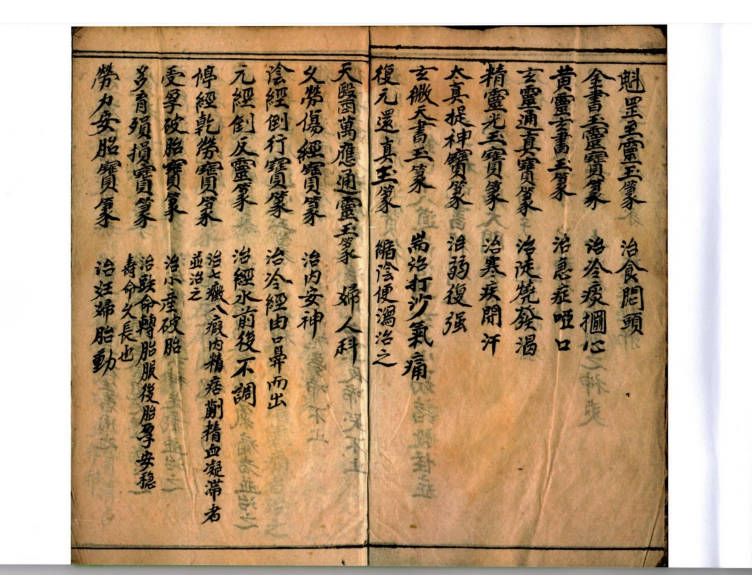 魁罡玉靈玉篆 治食悶頭
金書玉靈寶篆 治冷痰擱心
黃靈玄書玉篆 治急症啞口
玄靈通真寶篆 治陡燒發渴
精靈光玉寶篆 治寒疾開汗
太真提神寶篆 治弱復强
玄微天書玉篆 耑治打沙氣痛
復元還真玉篆 縮陰便瀉治之
天醫萬應通靈玉篆 婦人科
久勞傷經寶篆 治内安神
陰經倒行寶篆 治冷經由口鼻而出
元經倒反靈篆 治經水前後不調
停經乾勞寶篆 治七癥八瘕内精痞
並治之
受孕破胎寶篆 治小產破胎
多育殞損寶篆 治跌命轉胎服後胎孕安穩
壽命久長也
勞力安胎寶篆 治妊婦胎動